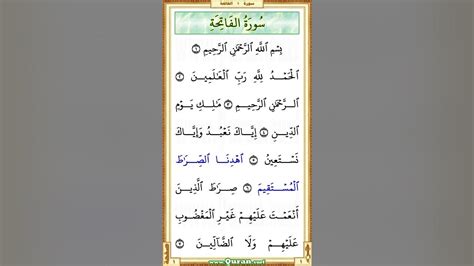 سورة ١ الفاتحة
سُورَةُ الفَاتِحَةِ
بِسْمِ ٱللَّهِ ٱلرَّحْمَٰنِ ٱلرَّحِيمِ ١
ٱلْحَمْدُ لِلَّهِ رَبِّ ٱلْعَٰلَمِينَ ٢
ٱلرَّحْمَٰنِ ٱلرَّحِيمِ ٣ مَٰلِكِ يَوْمِ
ٱلدِّينِ ٤ إِيَّاكَ نَعْبُدُ وَإِيَّاكَ
نَسْتَعِينُ ٥ ٱهْدِنَا ٱلصِّرَٰطَ
ٱلْمُسْتَقِيمَ ٦ صِرَٰطَ ٱلَّذِينَ
أَنْعَمْتَ عَلَيْهِمْ غَيْرِ ٱلْمَغْضُوبِ
عَلَيْهِمْ وَلَا ٱلضَّآلِّينَ ٧